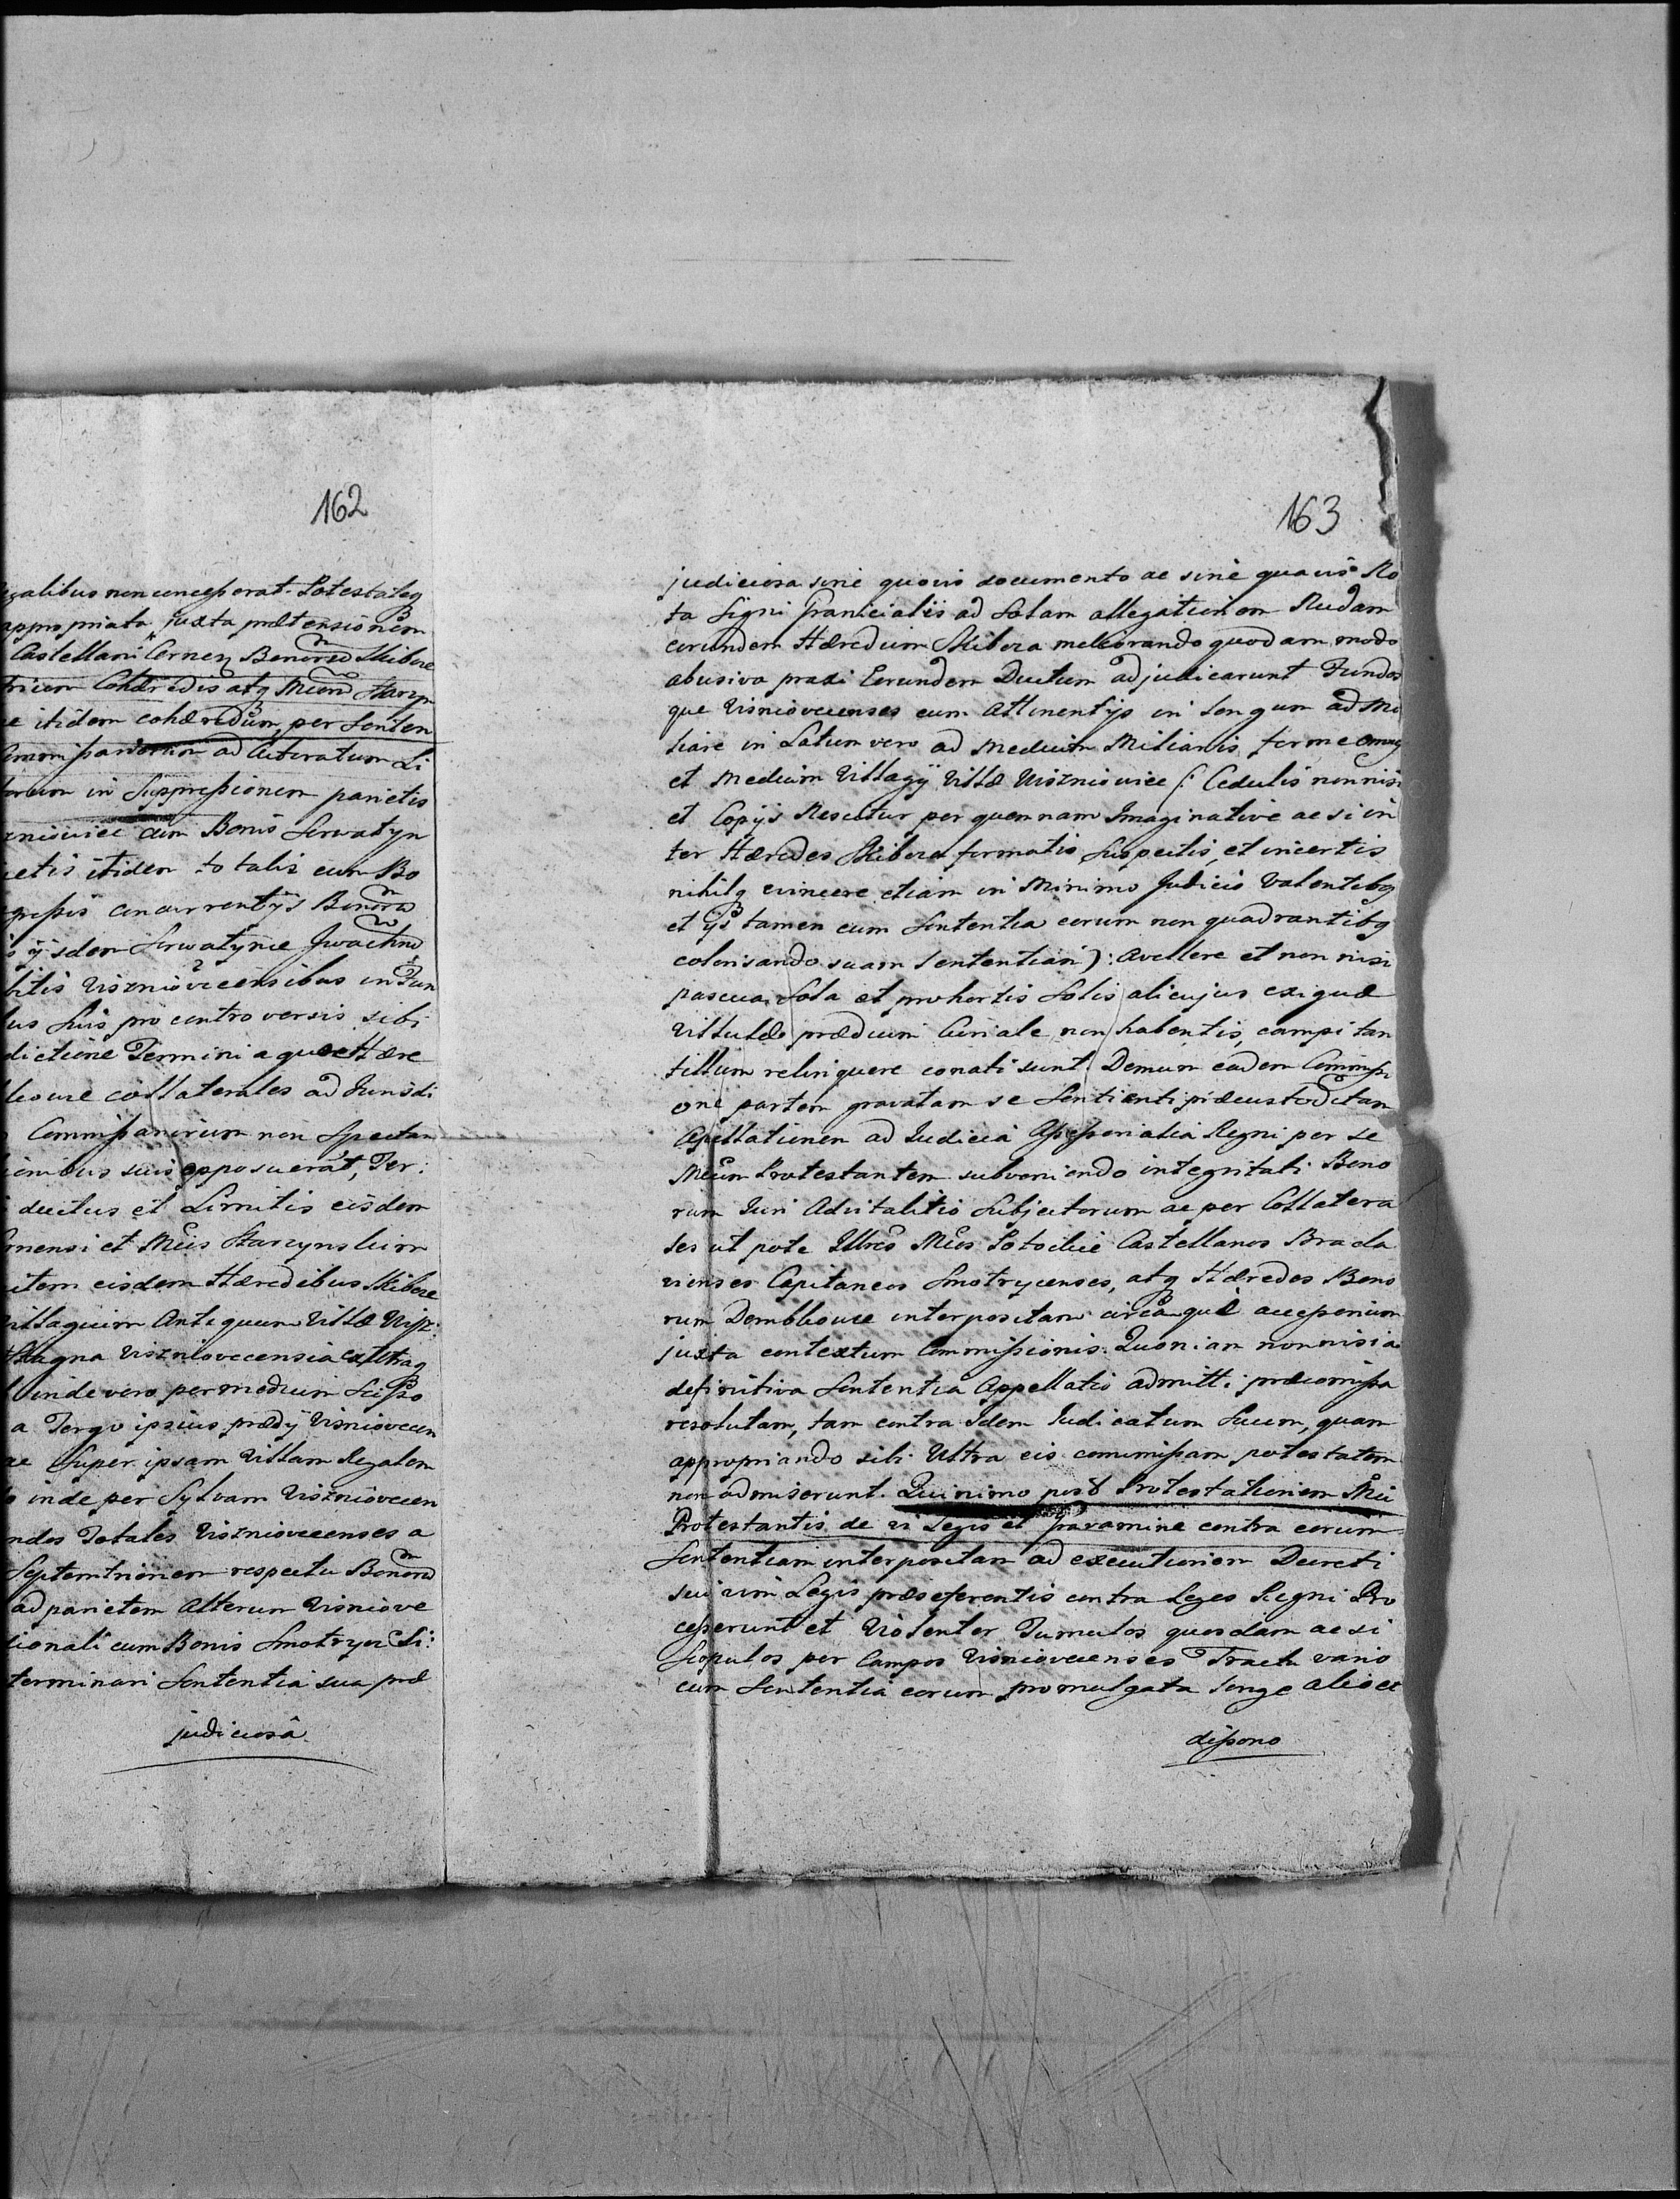 162
galibus non concesserat. Potestateq
appropriata juxta prætensionem
Castellani Cernen Bonorum Skibore
tricem Cohæredis atq Micorum Starzyn
e itidem cohæredum, per Senten
Commissariorum ad Literatum Li
in Suppressionem parietis
zniovice cum Bonis Serwatyn
ietis itidem totalis cum Bo
gressis concurrentijs Bonorum
ijsdem Serwatynie Iwachno
bitis Viszniovecensibus in Fun
us Suis pro controversis sibi
dictione Termini a quo Hære
bleowe collaterales ad Jurisdi
Commissariorum non Spectan
ionibus suis opposuerat, Ter:
ductus et Limitis eisdem
rnensi et Mcis Starzynskim
item eisdem Hæredibus Skibore
villagium Antiquum Villæ Visz:
Stagna Viszniovecensia ex utraq
inde vero per medium Scisso
a Tergo ipsius prædij Visniovecen
ae Super ipsam Villam Regalem
inde per Sylvam Viszniovecen
ndos Totales Viszniovecenses a
Septemtrionem respectu Bonorum
ad parietem Alterum Visniove
tionali cum Bonis Smotrycz Si:
terminari Sententia sua præ
judiciosâ
163
judiciosa sine quovis documento ac sine quavis No
ta Signi Granicialis ad Solam allegationem Nudam
eorundem Hæredum Skibora meliorando quodam modo
abusiva praxi Eorundem Ductum adjudicarunt Fundos
que Visniovecenses cum Attinentijs in Longum ad Mi
liare in Latum vero ad Medium Miliaris ferme omneq
et Medium Villagij Villæ Viszniovice (: Cedulis nonnisi
et Copijs Nescitur per quemnam Imaginative ac si in
ter Hæredes Skibora formatis Suspectis, et incertis
nihilq evincere etiam in Minimo Judicio Valentibq
et ijs tamen cum Sententia eorum non quadrantibq
colorisando suam Sententiam): Avellere et non nisi
pascua Sola et pro hortis Solis alicujus exiguæ
Villulæ prædium Curiale non habentis, campi tan
tillum relinquere conati sunt. Demum eadem Commissi
one partem gravatam se Sentienti præcustoditam
Apellationem ad Judicia Assessorialia Regni per se
Mcum Protestantem subveniendo integritati Bono
rum Juri Advitalitio Subjectorum ac per Collatera
les ut pote Illres Mcos Potockie Castellanos Bracla
vienses Capitaneos Smotrycenses, atq Hæredes Bono
rum Dembkowce interpositam circa quæ accessorium
juxta contextum Commissionis. Quoniam nonnisi a
definitiva Sententia Appellatio admitti præcomissa
resolutam, tam contra idem Judicatum Suum, quam
appropriando sibi Ultra eis commissam potestatem
non admiserunt. Quinimo post Protestationem Mci
Protestantis de vi Legis et gravamine contra eorum
Sententiam interpositam ad executionem Decreti
sui vim Legis præseferentis contra Leges Regni Pro
cesserunt et Violenter Tumulos quosdam ac si
Scopulos per Campos Visniovecenses Tractu vario
cum Sententia eorum promulgata longe alio et
dissono